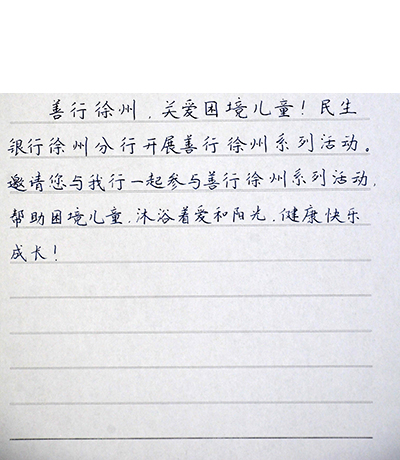 善行徐州,关爱困境儿童!民生
银行徐州分行开展善行徐州系列活动。
邀请您与我行一起参与善行徐州系列活动,
帮助困境儿童,沐浴着爱和阳光,健康快乐
成长!